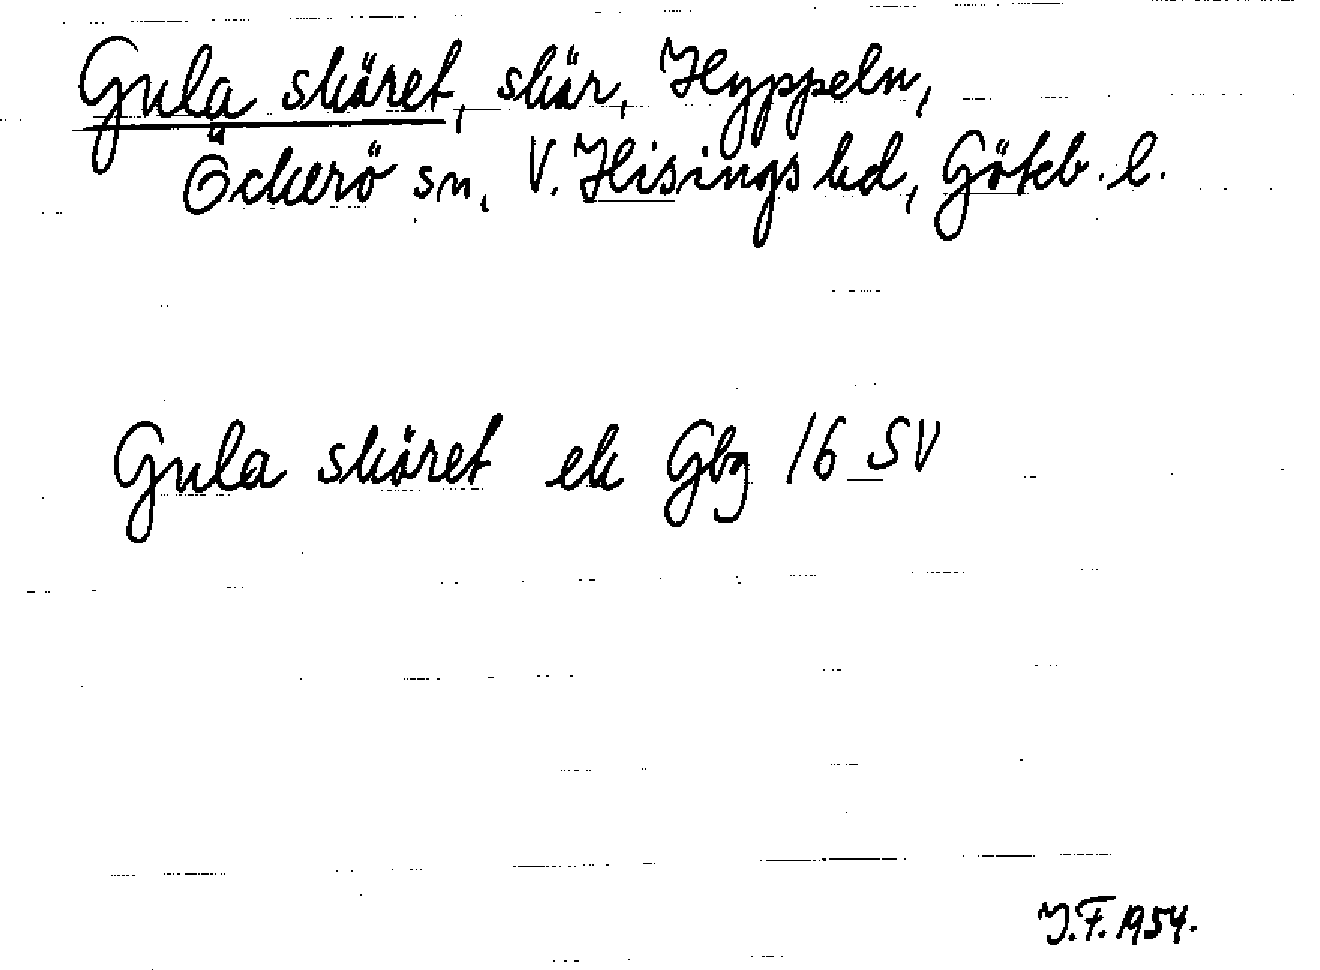 Gula skäret, skär, Hyppeln,
Öckerö sn, V. Hisings hd, Göteb. l.
Gula skäret ek Gbg 16 SV
J.F. 1954.